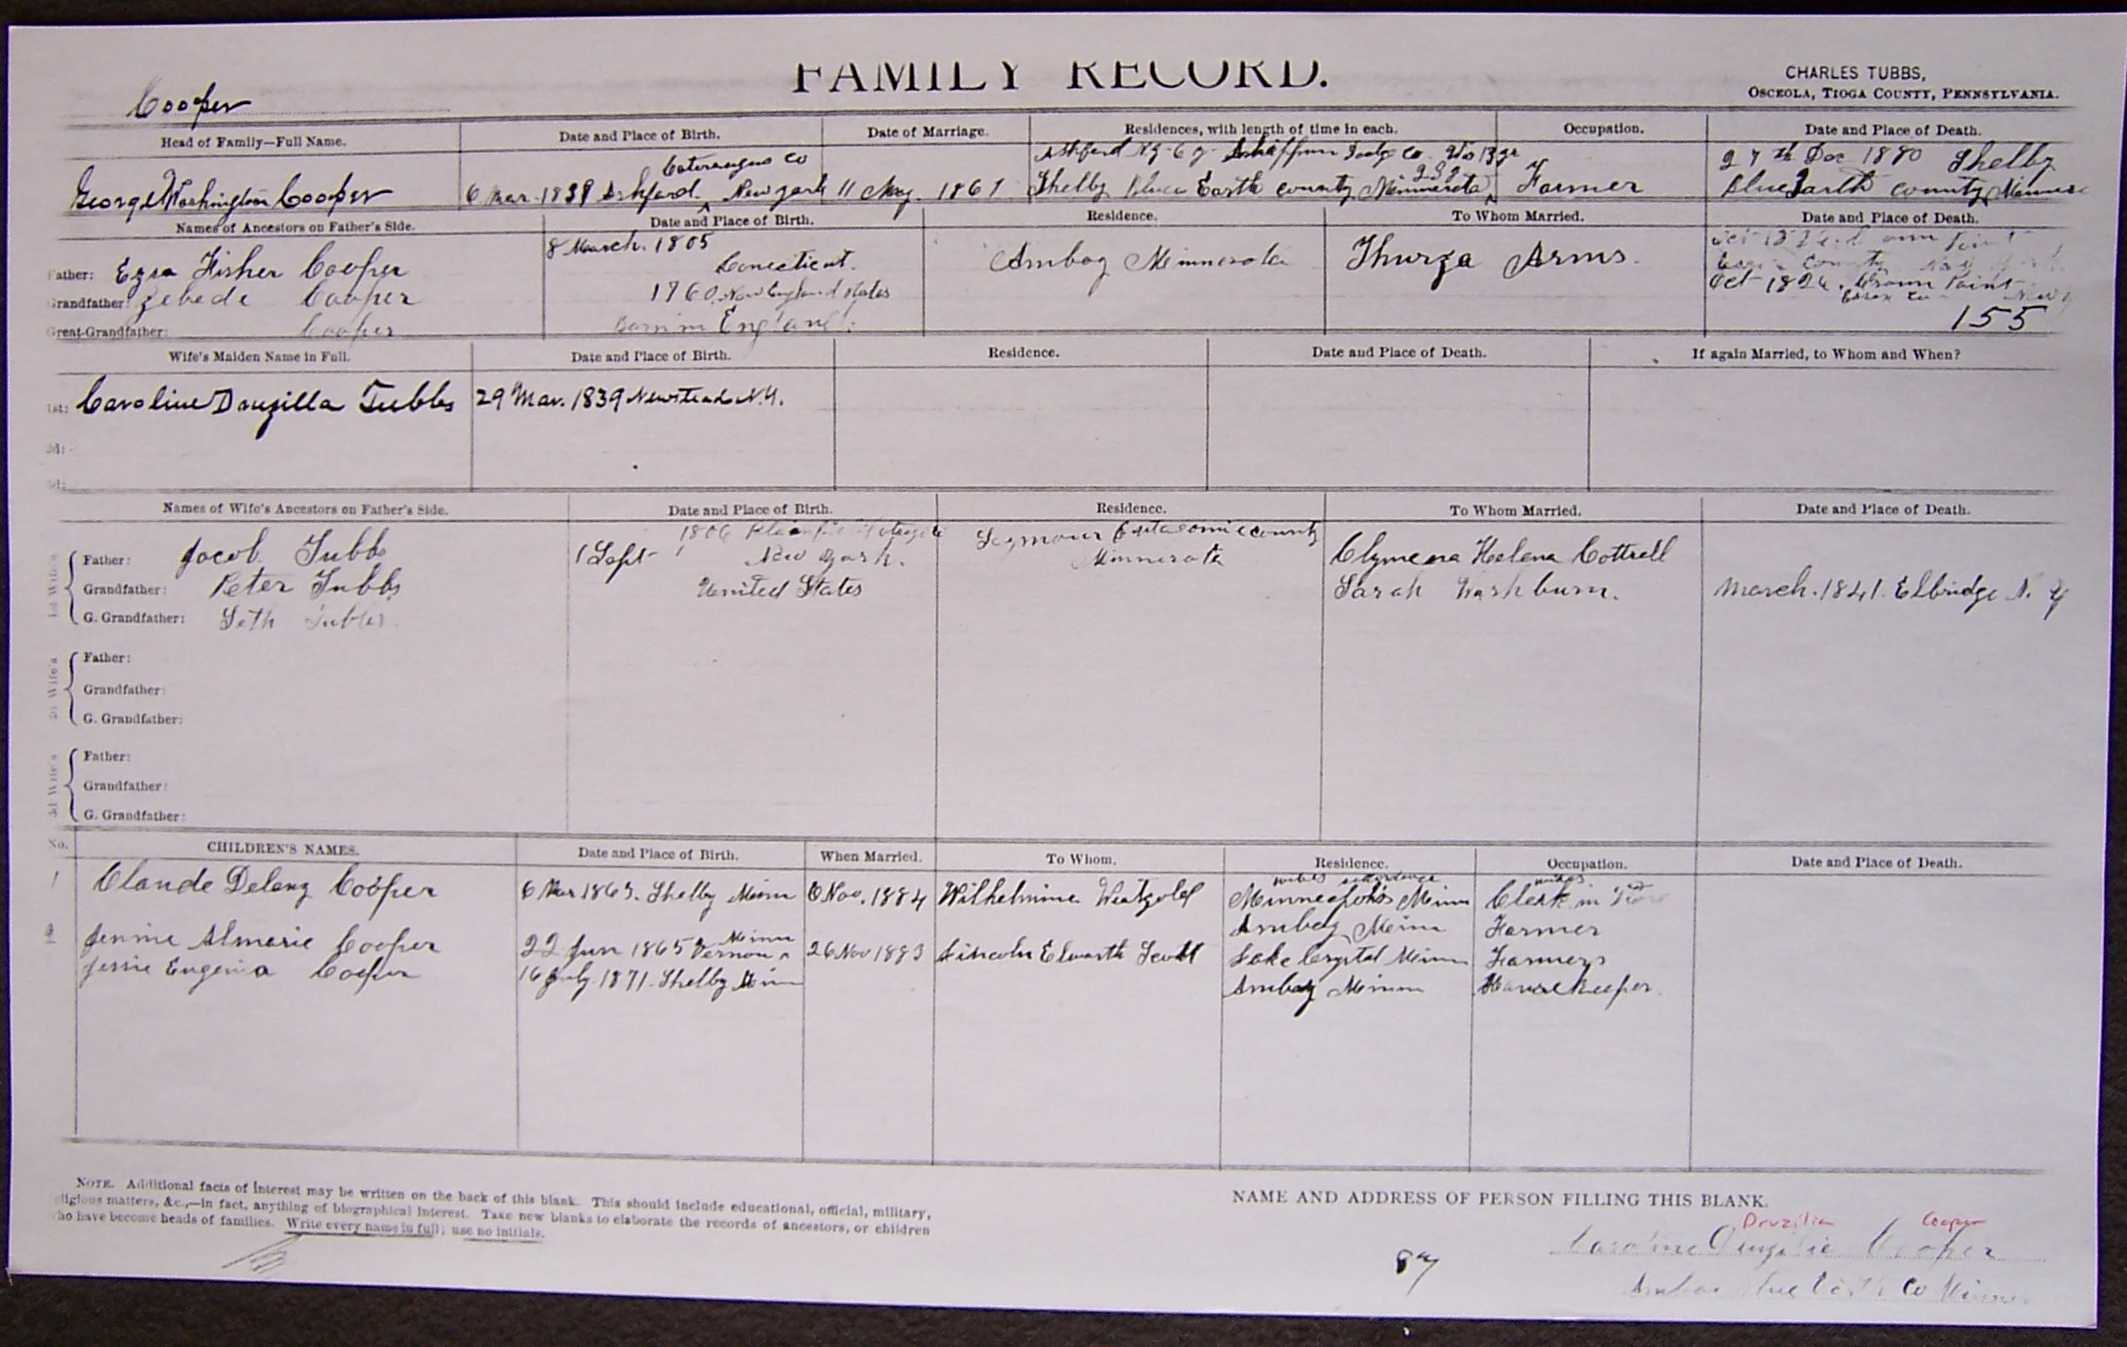 FAMILY RECORD.
CHARLES TUBBS,
OSCEOLA, TIOGA COUNTY, PENNSYLVANIA.
Cooper
Head of Family—Full Name. Date and Place of Birth. Date of Marriage. Residences, with length of time in each. Occupation. Date and Place of Death.
George Washington Cooper 6 Mar. 1839 Ashford Cataraugus co New york 11 Aug. 1861 Ashford N.Y. Dodge Co Shelby Blue Earth county Minnesota Farmer 27th Dec 1880 Shelby Blue Earth county
Names of Ancestors on Father's Side. Date and Place of Birth. Residence. To Whom Married. Date and Place of Death.
Father: Ezra Fisher Cooper 8 March. 1805 Conecticut. Amboy Minnesota Thurza Arms.
Grandfather: Zebede Cooper 1760. New England states Oct 1826. Crown Point Essex Co
Great-Grandfather: Cooper Born in England.
155
Wife's Maiden Name in Full. Date and Place of Birth. Residence. Date and Place of Death. If again Married, to Whom and When?
1st: Caroline Druzilla Tubbs 29 Mar. 1839 Newstead N.Y.
2d:
3d:
Names of Wife's Ancestors on Father's Side. Date and Place of Birth. Residence. To Whom Married. Date and Place of Death.
1st Wife's
Father: Jacob Tubbs 1 Sept 1806 New York. Seymour county Minnesota Clymena Helena Cottrell
Grandfather: Peter Tubbs United States Sarah Washburn. March. 1841. Elbridge N. Y
G. Grandfather: Seth Tubbs.
2d Wife's
Father:
Grandfather:
G. Grandfather:
3d Wife's
Father:
Grandfather:
G. Grandfather:
No. CHILDREN'S NAMES. Date and Place of Birth. When Married. To Whom. Residence. Occupation. Date and Place of Death.
1 Claude Delany Cooper 6 Mar 1863. Shelby Minn 6 Nov. 1884 Wilhelmina Weitzold Minneapolis Minn Clerk in
Amboy Minn Farmer
2 Jennie Almarie Cooper 22 Jun 1865 Vernon Minn 26 Nov 1883 Lincoln Elworth Scott Lake Crystal Minn Farmers
Jessie Eugenia Cooper 16 July 1871. Shelby Minn Amboy Minnn House keeper.
NOTE. Additional facts of interest may be written on the back of this blank. This should include educational, official, military,
religious matters, &c.,—in fact, anything of biographical interest. Take new blanks to elaborate the records of ancestors, or children
who have become heads of families. Write every name in full; use no initials.
NAME AND ADDRESS OF PERSON FILLING THIS BLANK.
Druzilia Cooper
Caroline Cooper
Co
87